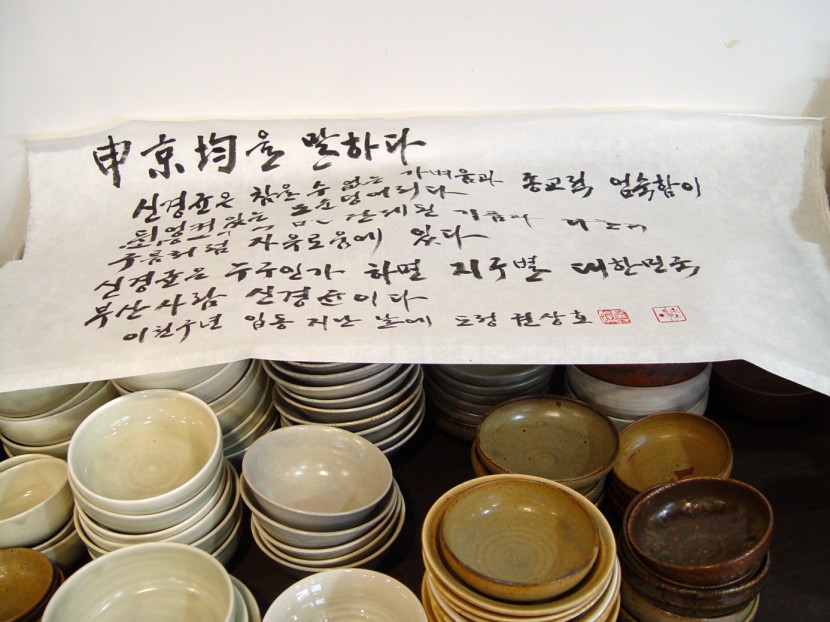 申京均을 말하다
신경균은 참을 수 없는 가벼움과 종교적 엄숙함이
뒤엉켜있는 모순덩어리다
구름처럼 자유로움에 있다
신경균은 누구인가 하면 지구별 대한민국
부산사람 신경균이다
이천구년 입동 지난 날에 도정 권상호